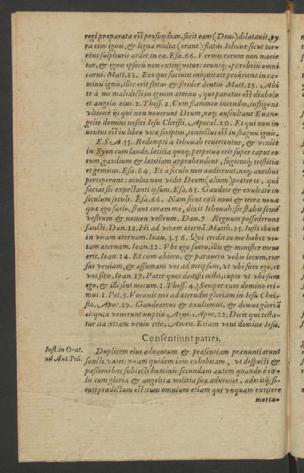 regi præparata est profundam, fecit eam (Deus) dilatauit, py
ra eius ignis, & ligna multa (erant) flatus Iehouæ sicut tor-
rens sulphuris ardet in ea. Esa. 66. Vermis eorum non morie
tur, & ignis ipsorū non extinguetur: eruntque probrū omni
carni. Matt. 13. Eos qui faciunt iniquitatē proijcient in ca-
minū ignis, illic erit fletus & stridor dentiū Matt. 25. Abi
te à me maledicti in ignem æternū, qui paratus est diabolo
et angelis eius. 2. Thess. 1. Cum flamma incendij, infligens
vltionē iis qui non nouerunt Deum, neque auscultant Euan-
gelio domini nostri Iesu Christi. Apocal. 20. Et qui non in
uentus est in libro vitæ scriptus, coniectus est in stagnū ignis.
ESA. 35. Redempti à Iehouah reuertentur, & venient
in Syon cum laude, lætitia quoque perpetua erit super caput eo
rum, gaudium & lætitiam apprehendent, fugientque tristitia
et gemitus. Esa. 64. Et à sæculo non audierunt, neque auribus
perceperunt: oculus non vidit Deum (alium) præter te, qui
faciat sic expectanti ipsum. Esa. 65. Gaudete & exultate in
sæculum sæculi. Esa. 66. Nam sicut cœli noui & terra noua
quæ ego facio, stant coram me, dixit Iehouah: sic stabit semē
vestrum & nomen vestrum. Dan. 7 Regnum possederunt
sancti. Dan. 12. Hi ad vitam æternā. Matth. 25. Iusti ibunt
in vitam æternam. Ioan. 3. 5. 6. Qui credit in me habet vi-
tam æternam. Ioan. 12. Vbi ego fuero, illic & minister meus
erit. Ioan. 14. Et cum abiero, & parauero vobis locum, rur
sus veniam, & assumam vos ad meipsum, vt vbi sum ego, et
vos sitis. Ioan. 17. Pater quos dedisti mihi, cupio vt vbi sum
ego, & illi sint mecum. 1. Thess. 4. Semper cum domino eri-
mus. 1. Pet. 5. Vocauit nos ad æternam gloriam in Iesu Chri-
sto. Apoc. 19. Gaudeamus & exultemus, & demus gloriā
ei, quia venerunt nuptiæ Agni. Apoc. 22. Dicit qui testa-
tur ista: etiam venio cito, Amen. Etiam veni domine Iesu.
Consentiunt patres.
Iust. in Orat.
ad Ant. Piū.
Duplicem eius aduentum & præsentiam prænuntiarunt
sancti vates: vnam quidem iam exhibitam, vt despecti &
passionibus subiecti hominis: secundam autem quando è cœ-
lis cum gloria & angelica militia sua adueniet, adeoque si-
cut prædictum est: cum omnium etiam qui vnquam extitere
morta-